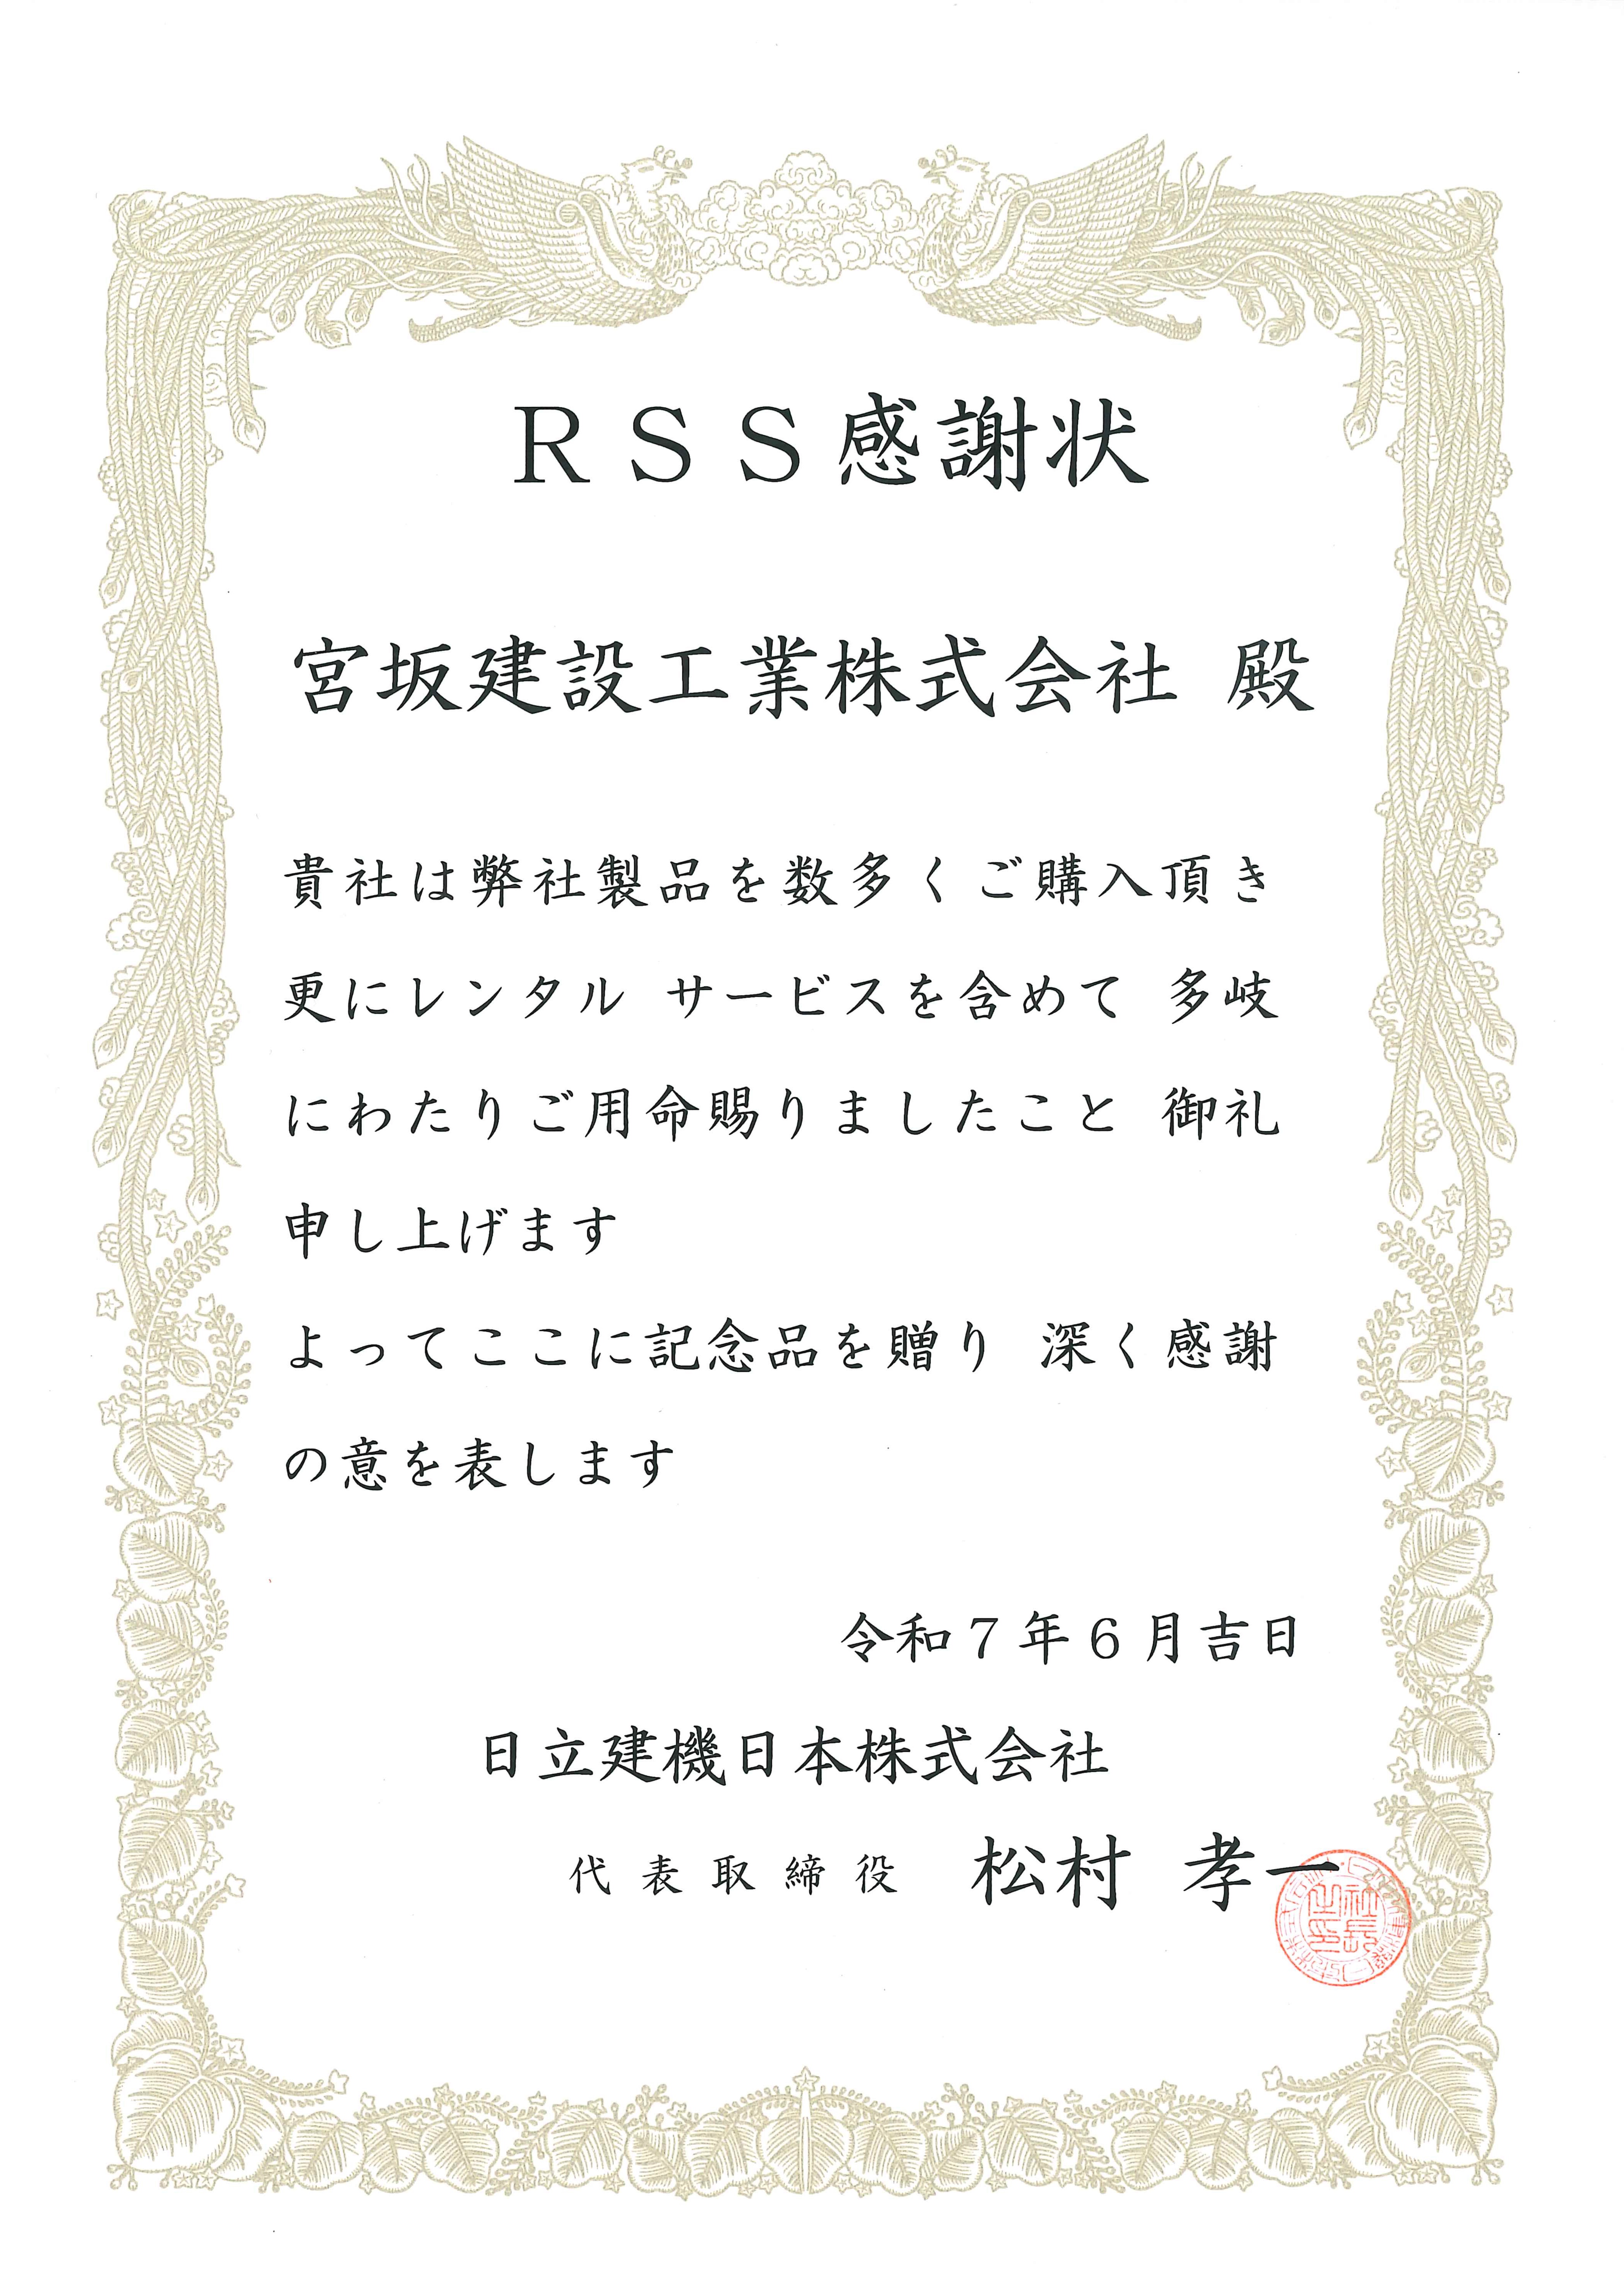 ＲＳＳ感謝状
宮坂建設工業株式会社 殿
貴社は弊社製品を数多くご購入頂き
更にレンタル サービスを含めて 多岐
にわたりご用命賜りましたこと 御礼
申し上げます
よってここに記念品を贈り 深く感謝
の意を表します
令和７年６月吉日
日立建機日本株式会社
代表取締役 松村 孝一
社長之印